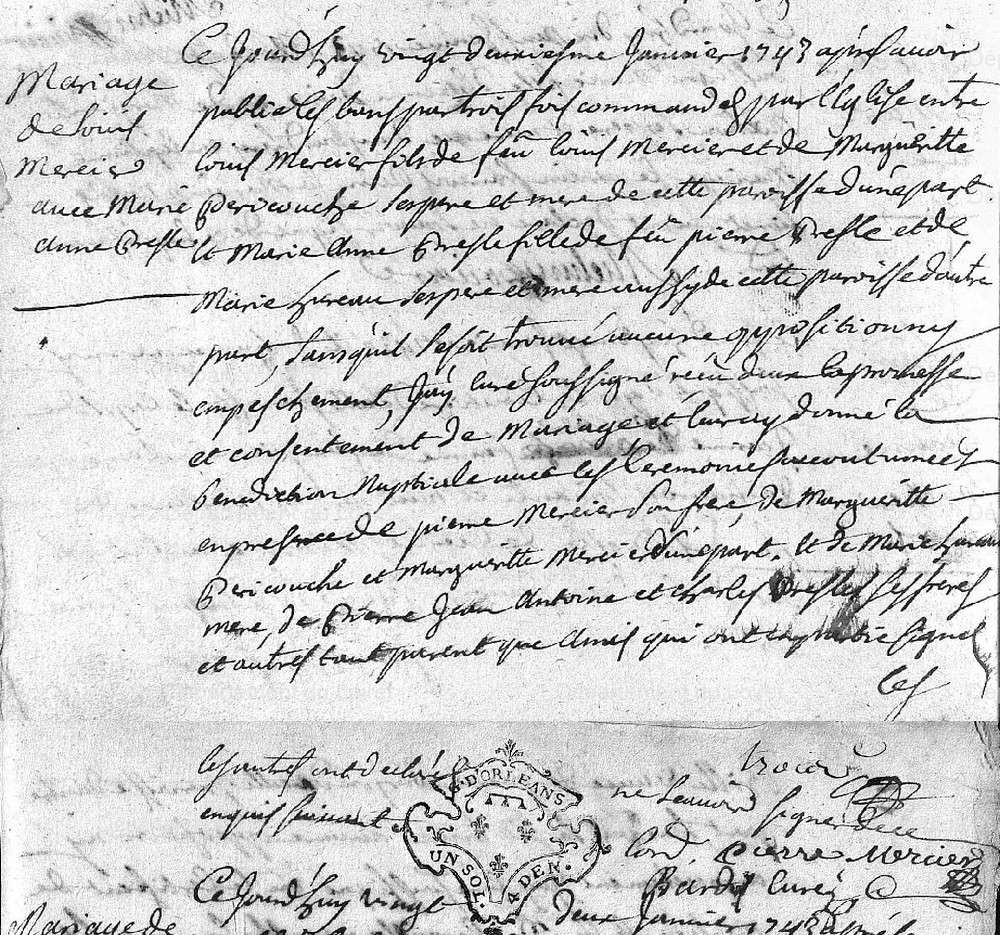 Mariage
de Louis
Mercier
avec Marie
anne Presle
Ce Jourd'huy vingt deuxiesme Janvier 1743 apres avoir
publié les bans par trois fois commandés par l'Eglise entre
louis Mercier fils de feu louis Mercier et de Margueritte
Pericouche ses pere et mere de cette paroisse d'une part
Et Marie Anne Presle fille de feu pierre Presle et de
Marie hureau ses pere et mere aussy de cette paroisse d'autre
part, sans qu'il se soit trouvé aucune opposition ny
empeschement, J'ay curé soussigné reçu d'eux la promesse
et consentement de Mariage et leur ay donné la
benediction Nuptiale avec les Ceremonies accoutumées
en presence de pierre Mercier son frere, de Margueritte
Pericouche et Margueritte Mercier d'une part. Et de Marie hureau
mere, de Pierre Jean Antoine et charles Presles ses freres
et autres tant parent que Amis qui ont en partie signes
les
les autres ont declarés
ne scavoir signer de ce
enquis suivant
lord.
Pierre Mercier
G. D'ORLEANS
UN SOL. 4 DEN.
Bardy Curé
Mariage de
Ce Jourd'huy vingt deux Janvier 1743